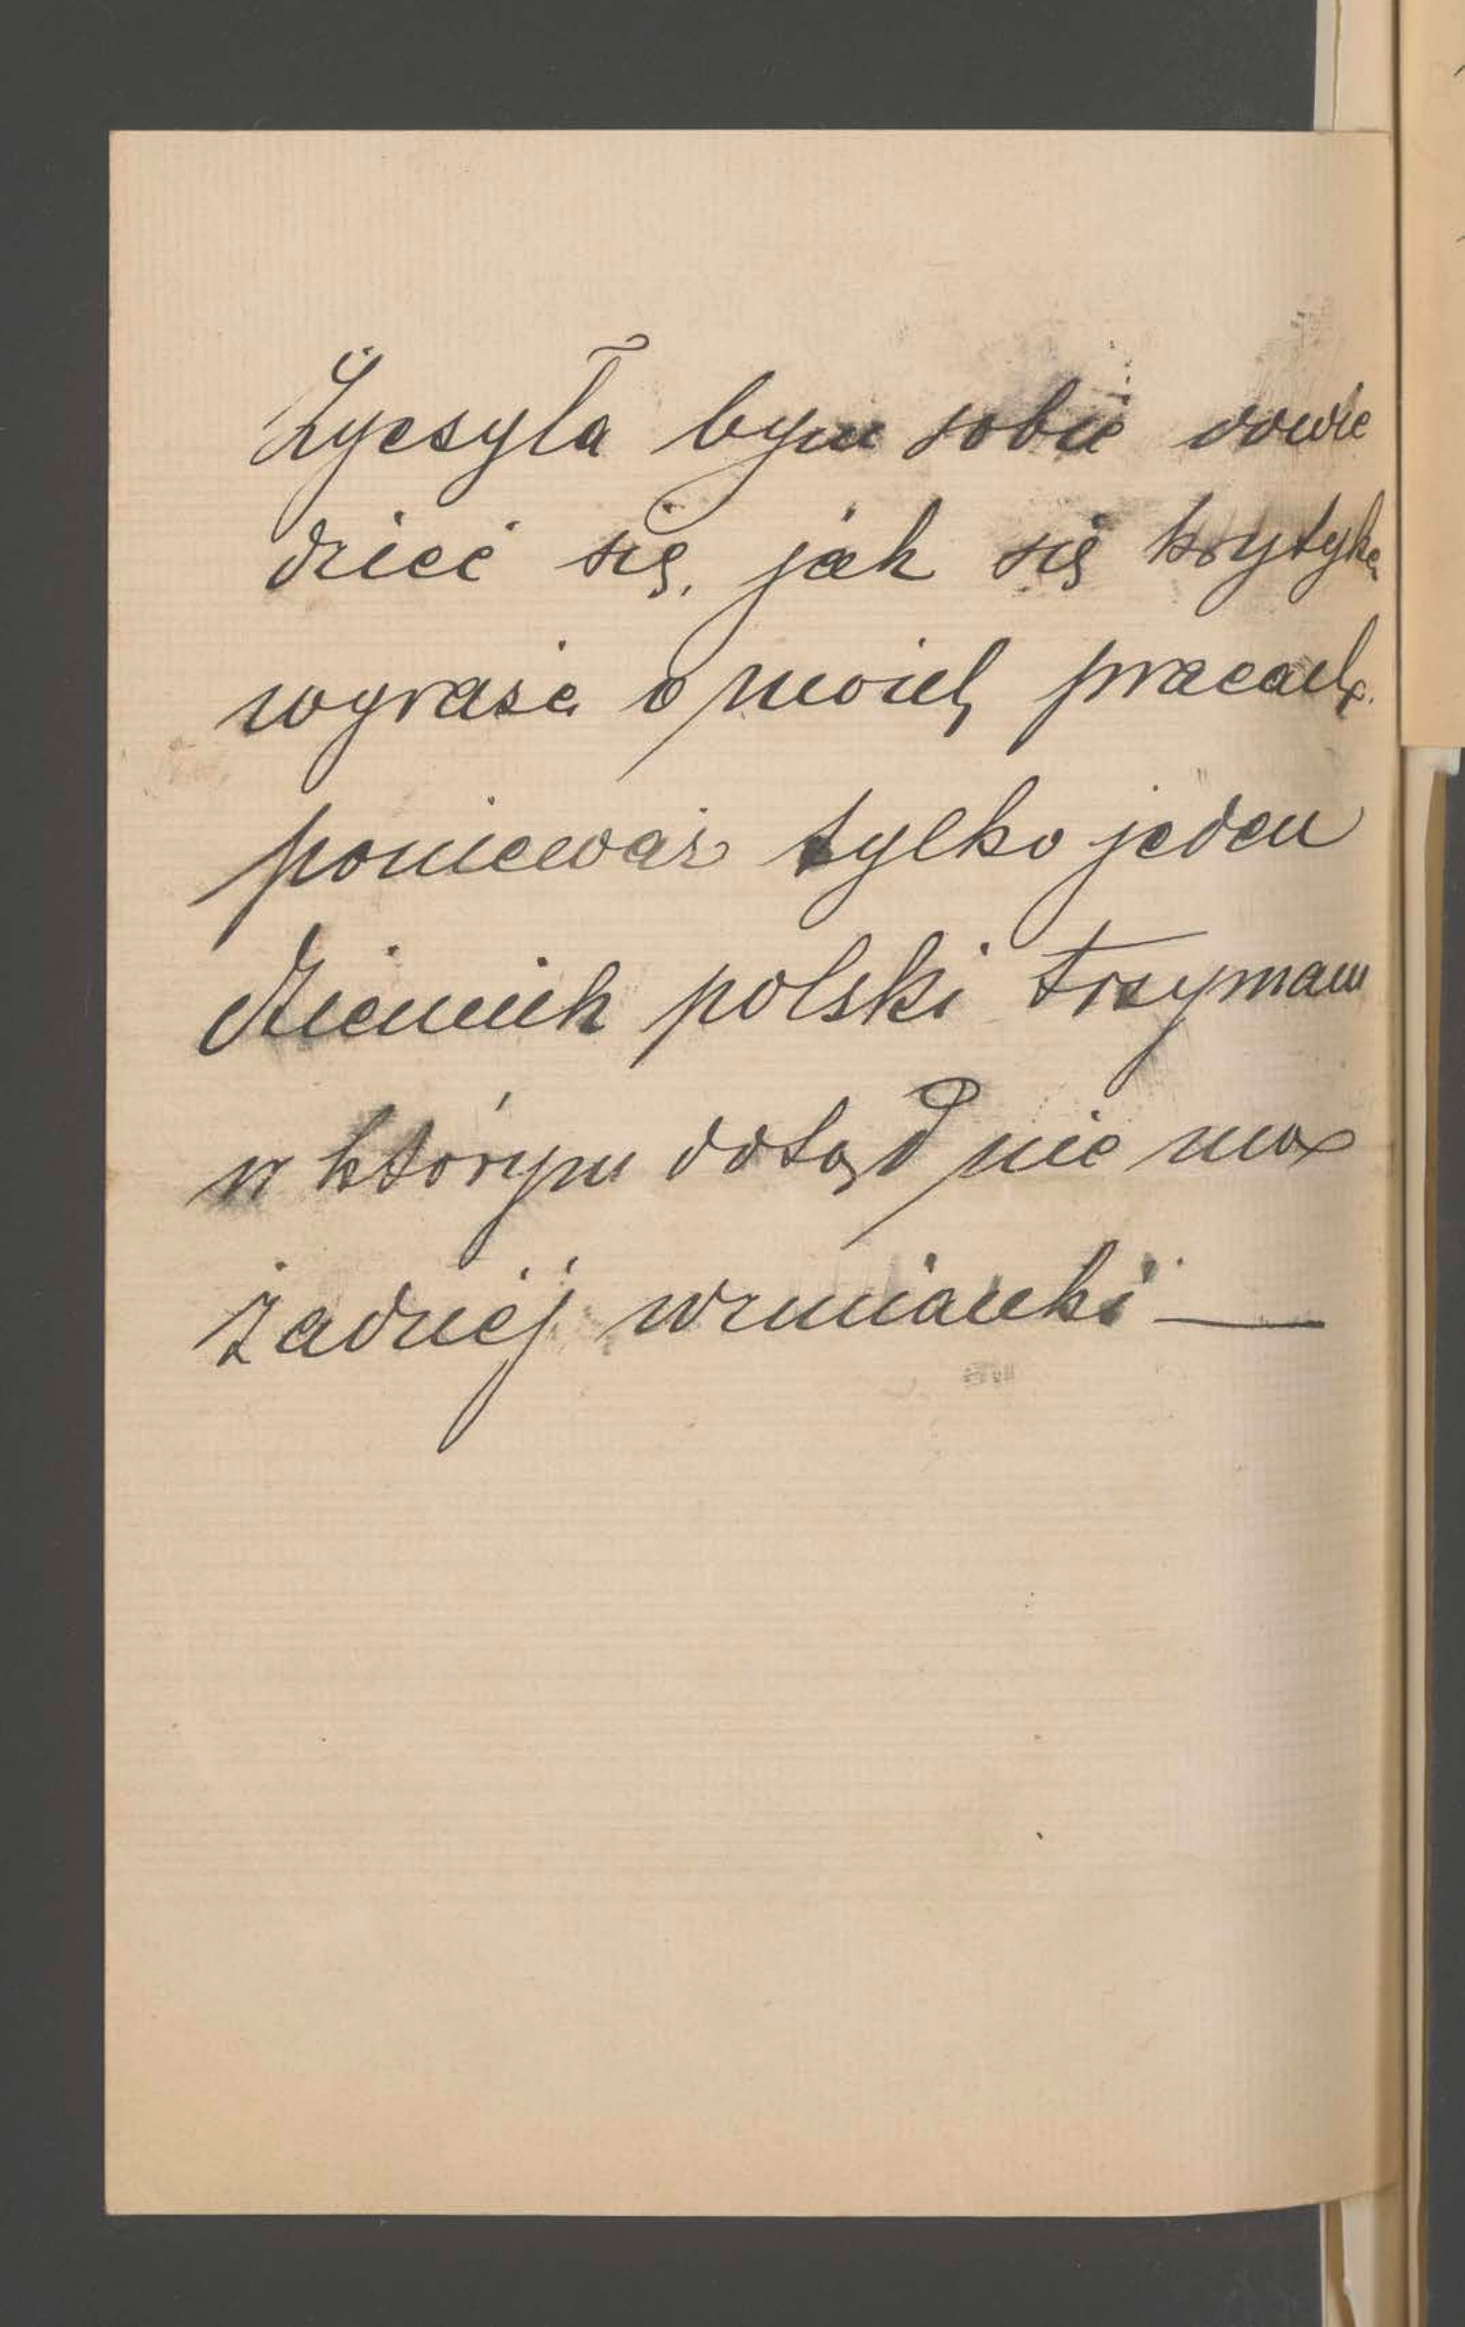 Życzyła bym sobie dowie
dzieć się, jak się krytyka
wyraża o moich pracach
ponieważ tylko jeden
Dziennik polski trzymam
w którym dotąd nie ma
żadnéj wzmianki —